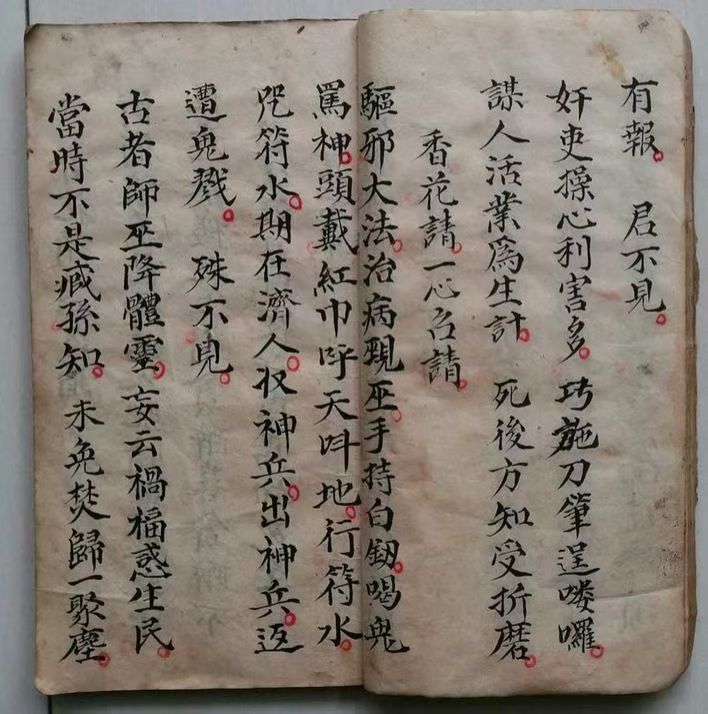 有報。 君不見。
奸吏操心利害多。巧施刀筆逞喽囉。
謀人活業爲生計。 死後方知受折磨。
香花請。一心召請。
驅邪大法。治病覡巫。手持白劔喝鬼
罵神。頭戴紅巾呼天呌地。行符水。
咒符水。期在濟人。収神兵。出神兵。返
遭鬼戮。 殊不見。
古者師巫降體靈。妄云禍福惑生民。
當時不是臧孫知。未免焚歸一聚塵。